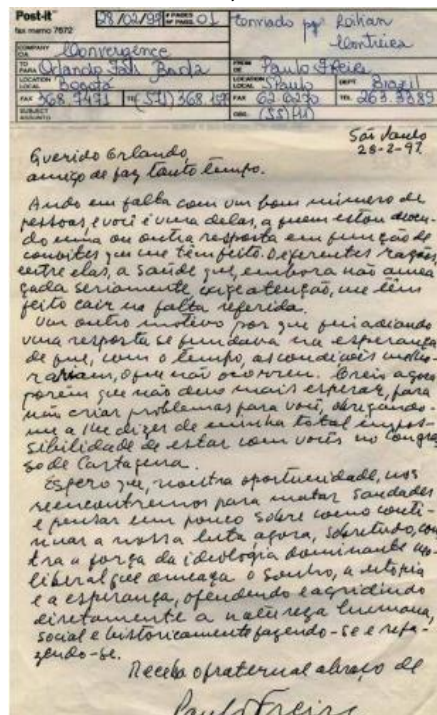 Post-it™ fax memo 7672
28/02/97 # PAGES Nº PAGS. 01
COMPANY CIA. Convergence
TO PARA Orlando Fals Borda
FROM DE Paulo Freire
LOCATION LOCAL Bogotá
LOCATION LOCAL S Paulo DEPT. Brazil
FAX 368.7471
FAX 62 6270 TEL. 263.3389
SUBJECT ASSUNTO OBS. (55)(11)
São Paulo
28-2-97
Querido Orlando,
amigo de faz tanto tempo.
Ando em falta com um bom número de
pessoas, e você é uma delas, a quem estou deven-
do uma ou outra resposta em função de
convites que me têm feito. Diferentes razões,
entre elas, a saúde que, embora não amea-
çada seriamente exige atenção, me têm
feito cair na falta referida.
Um outro motivo por que fui adiando
uma resposta se fundava na esperança
de que, com o tempo, as condições melho-
rariam, o que não ocorreu. Creio agora
porém que não devo mais esperar, para
não criar problemas para você, obrigando-
me a lhe dizer de minha total impos-
sibilidade de estar com vocês no Congres
so de Cartagena.
Espero que, noutra oportunidade, nos
reencontremos para matar saudades
e pensar um pouco sobre como conti-
nuar a nossa luta agora, sobretudo, con
tra a força da ideologia dominante neo-
liberal que ameaça o sonho, a utopia
e a esperança, ofendendo e agredindo
diretamente a natureza humana,
social e historicamente fazendo-se e refa-
zendo-se.
Receba o fraternal abraço de
Paulo Freire